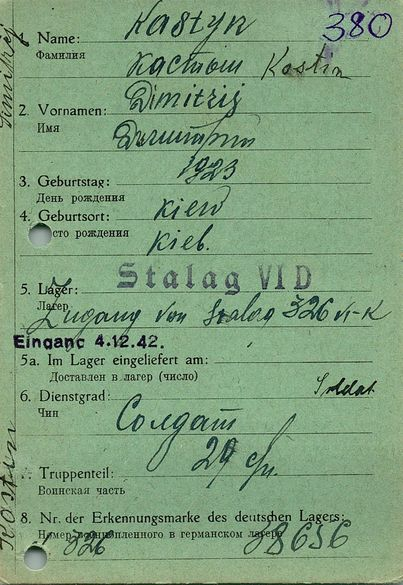 Kastyn
380
1. Name:
Фамилия
Kostin
2. Vornamen:
Dimitrij
Имя
Дмитрий
1923
3. Geburtstag:
День рождения
4. Geburtsort: Kiew
сто рождения
Киев.
5. Lager: Stalag VI D
Лагерь
Zugang von Stalag 326 VI-K
Eingang 4.12.42.
5a. Im Lager eingeliefert am:
Доставлен в лагерь (число)
6. Dienstgrad: Soldat
Чин
Солдат
Truppenteil: 29
Воинская часть
8. Nr. der Erkennungsmarke des deutschen Lagers:
326
Kostin